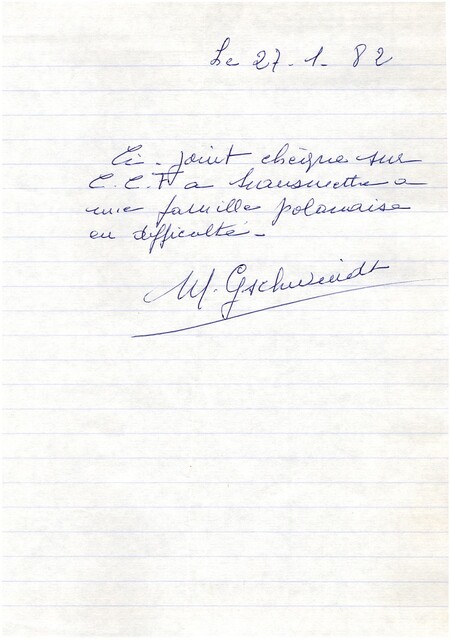 Le 27-1-82
Ci-joint chèque sur
C.C.F a transmettre a
une famille polonaise
en difficulté-
M. Gschwindt